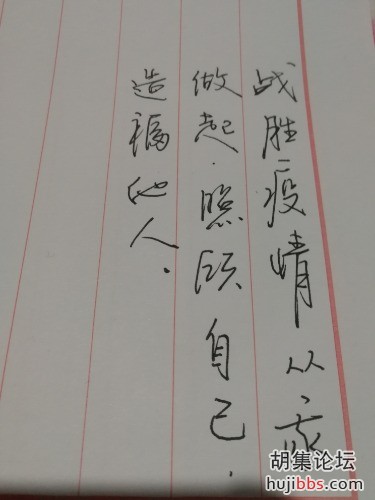 战胜疫情从家
做起.照顾自己.
造福他人.
胡集论坛
hujibbs.com